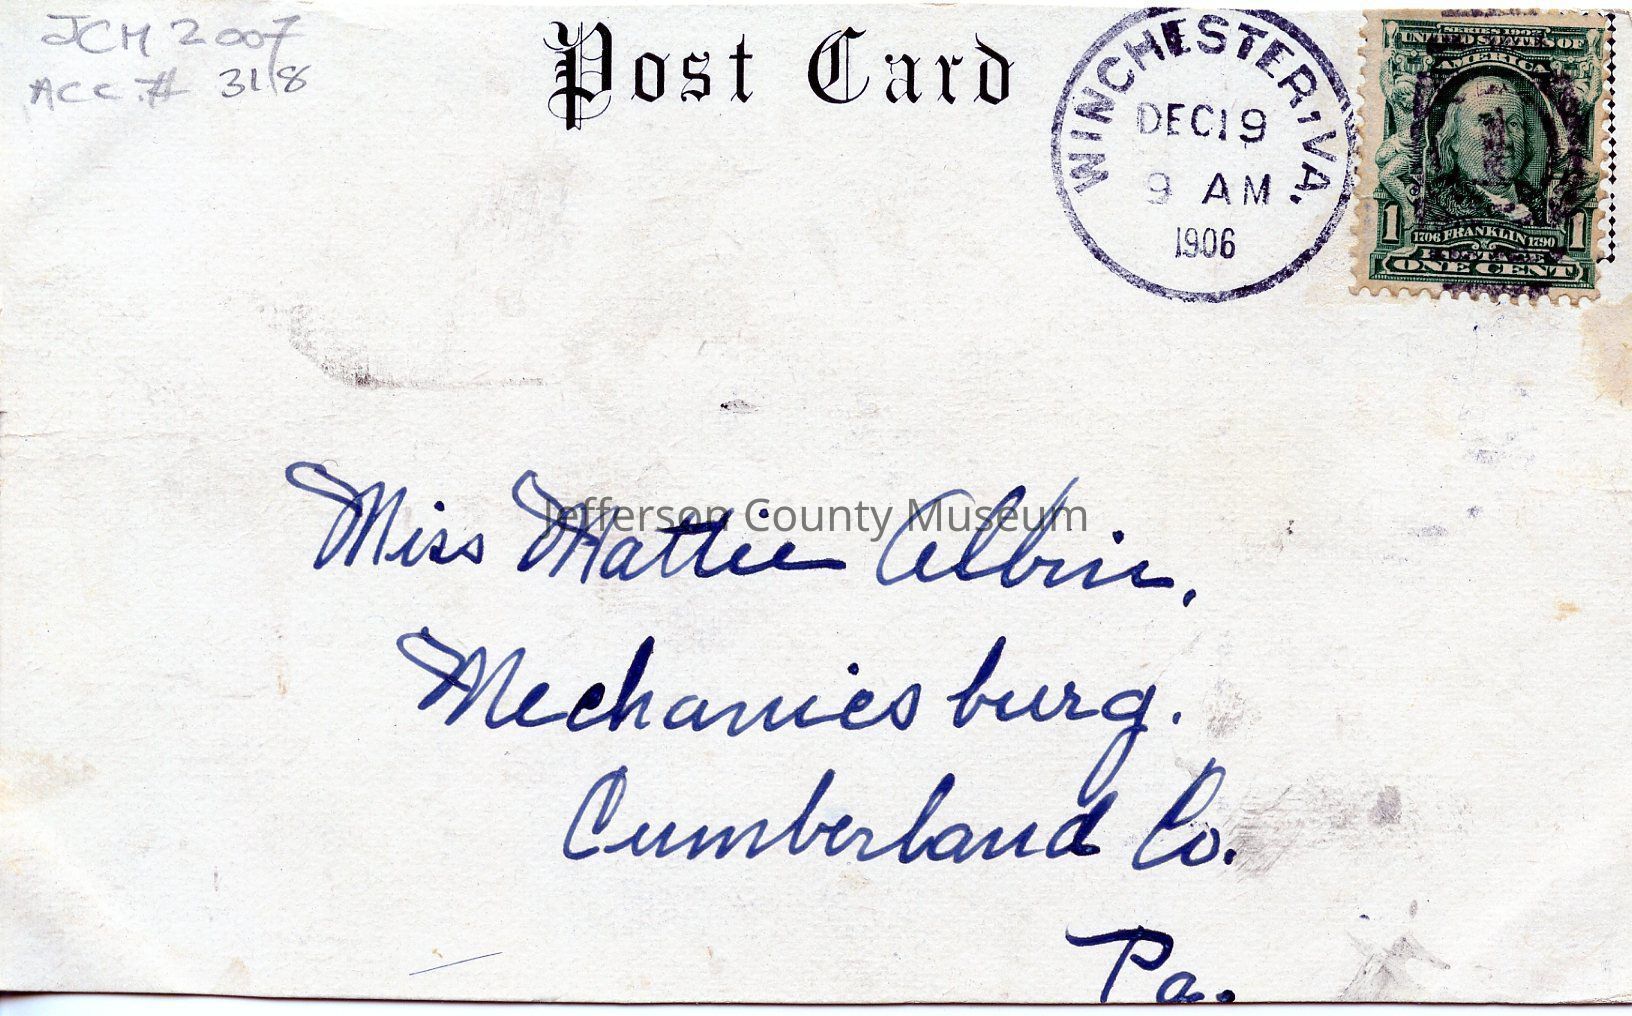 JCM 2007
Acc. # 318
Post Card
WINCHESTER, VA.
DEC 19
9 AM
1906
SERIES 1902
UNITED STATES OF
AMERICA
1 1706 FRANKLIN 1790 1
POSTAGE
ONE CENT
Jefferson County Museum
Miss Mattie Albin,
Mechanicsburg.
Cumberland Co.
Pa.